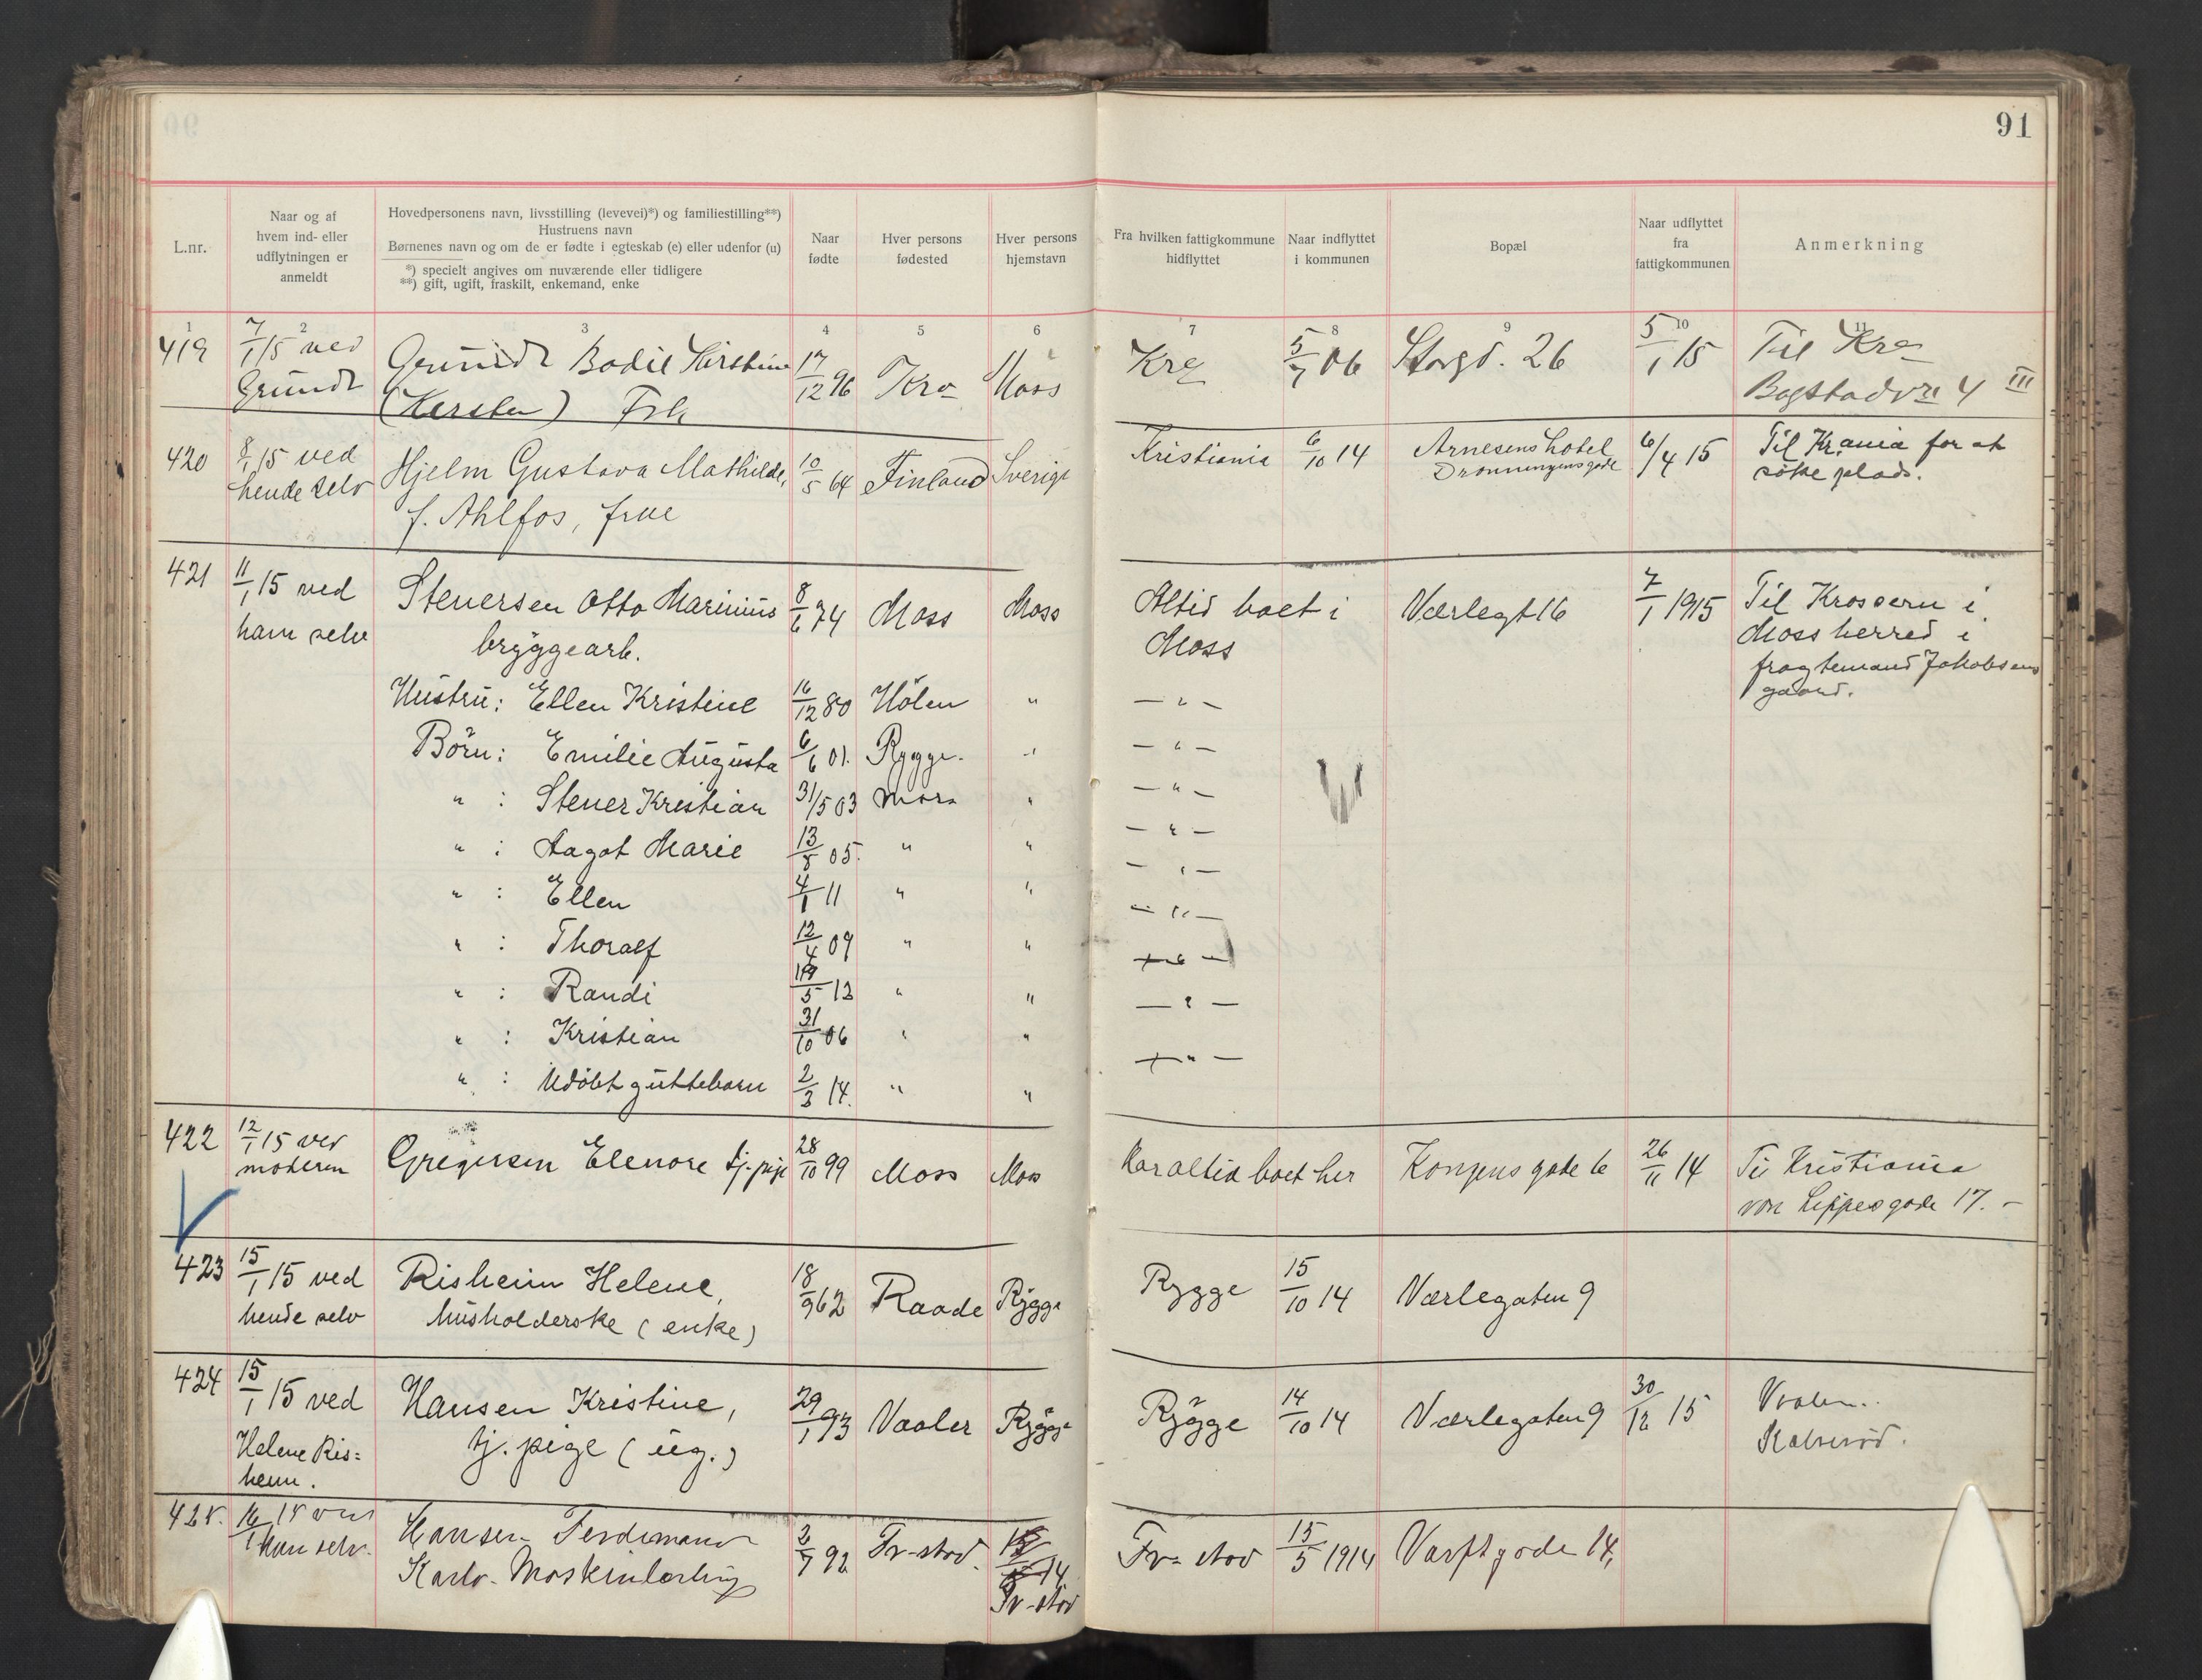 91
L.nr.
Naar og af
hvem ind- eller
udflytningen er
anmeldt
Hovedpersonens navn, livsstilling (levevei)*) og familiestilling**)
Hustruens navn
Børnenes navn og om de er fødte i egteskab (e) eller udenfor (u)
*) specielt angives om nuværende eller tidligere
**) gift, ugift, fraskilt, enkemand, enke
Naar
fødte
Hver persons
fødested
Hver persons
hjemstavn
Fra hvilken fattigkommune
hidflyttet
Naar indflyttet
i kommunen
Bopæl
Naar udflyttet
fra
fattigkommunen
Anmerkning
1 2 3 4 5 6 7 8 9 10 11
419 7/1 15 ved Grundt Bodil Kirstine 17/12 96 Kra Moss Kra 5/7 06 Storgd. 26 5/1 15 Til Kra
Grundt (Kersten) Frk Bogstadvn 4 III
420 8/1 15 ved Hjelm Gustava Mathilde, 10/5 64 Finland Sverige Kristiania 6/10 14 Arnesens hotel 6/4 15 Til Krania for at
hende selv f. Ahlfos, frue Dronningensgade søke plads.
421 11/1 15 ved Stenersen Otto Marinius 8/6 74 Moss Moss Altid boet i Værlegt 16 7/1 1915 Til Krossern i
ham selv bryggearb. Moss Moss herred i
fragtemand Jakobsens
gaard.
Hustru: Ellen Kristine 16/12 80 Hölen " — " —
Börn: Emilie Augusta 6/6 01. Rygge. " — " —
" : Stener Kristian 31/5 03 Moss " — " —
" : Aagot Marie 13/8 05. " " — " —
" : Ellen 4/1 11 " " — " —
" : Thoralf 12/4 09 " " — " —
" : Randi 5 12 " " — " —
" : Kristian 31/10 06 " " — " —
" : Udöbt guttebarn 2/3 14. " " — " —
422 12/1 15 ved Gregersen Elenore tj. pige 28/10 99 Moss Moss Har altid boet her Kongens gade 6 26/11 14 Til Kristiania
moderen von Lippes gade 17. –
423 15/1 15 ved Risheim Helene, 18/9 62 Raade Rygge Rygge 15/10 14 Værlegaten 9
hende selv husholderske (enke)
424 15/1 15 ved Hansen Kristine, 29/1 93 Vaaler Rygge Rygge 14/10 14 Værlegaten 9 30/12 15 Vaaler.
Helene Ris= tj. pige (ug.)
heim.
425. 16/1 15 ved Hansen Ferdinand 2/7 92 Fr-stad. Fr-stad 15/5 1914 Varftgade 14,
ham selv. Karlo. Maskinlærling Fr-stad